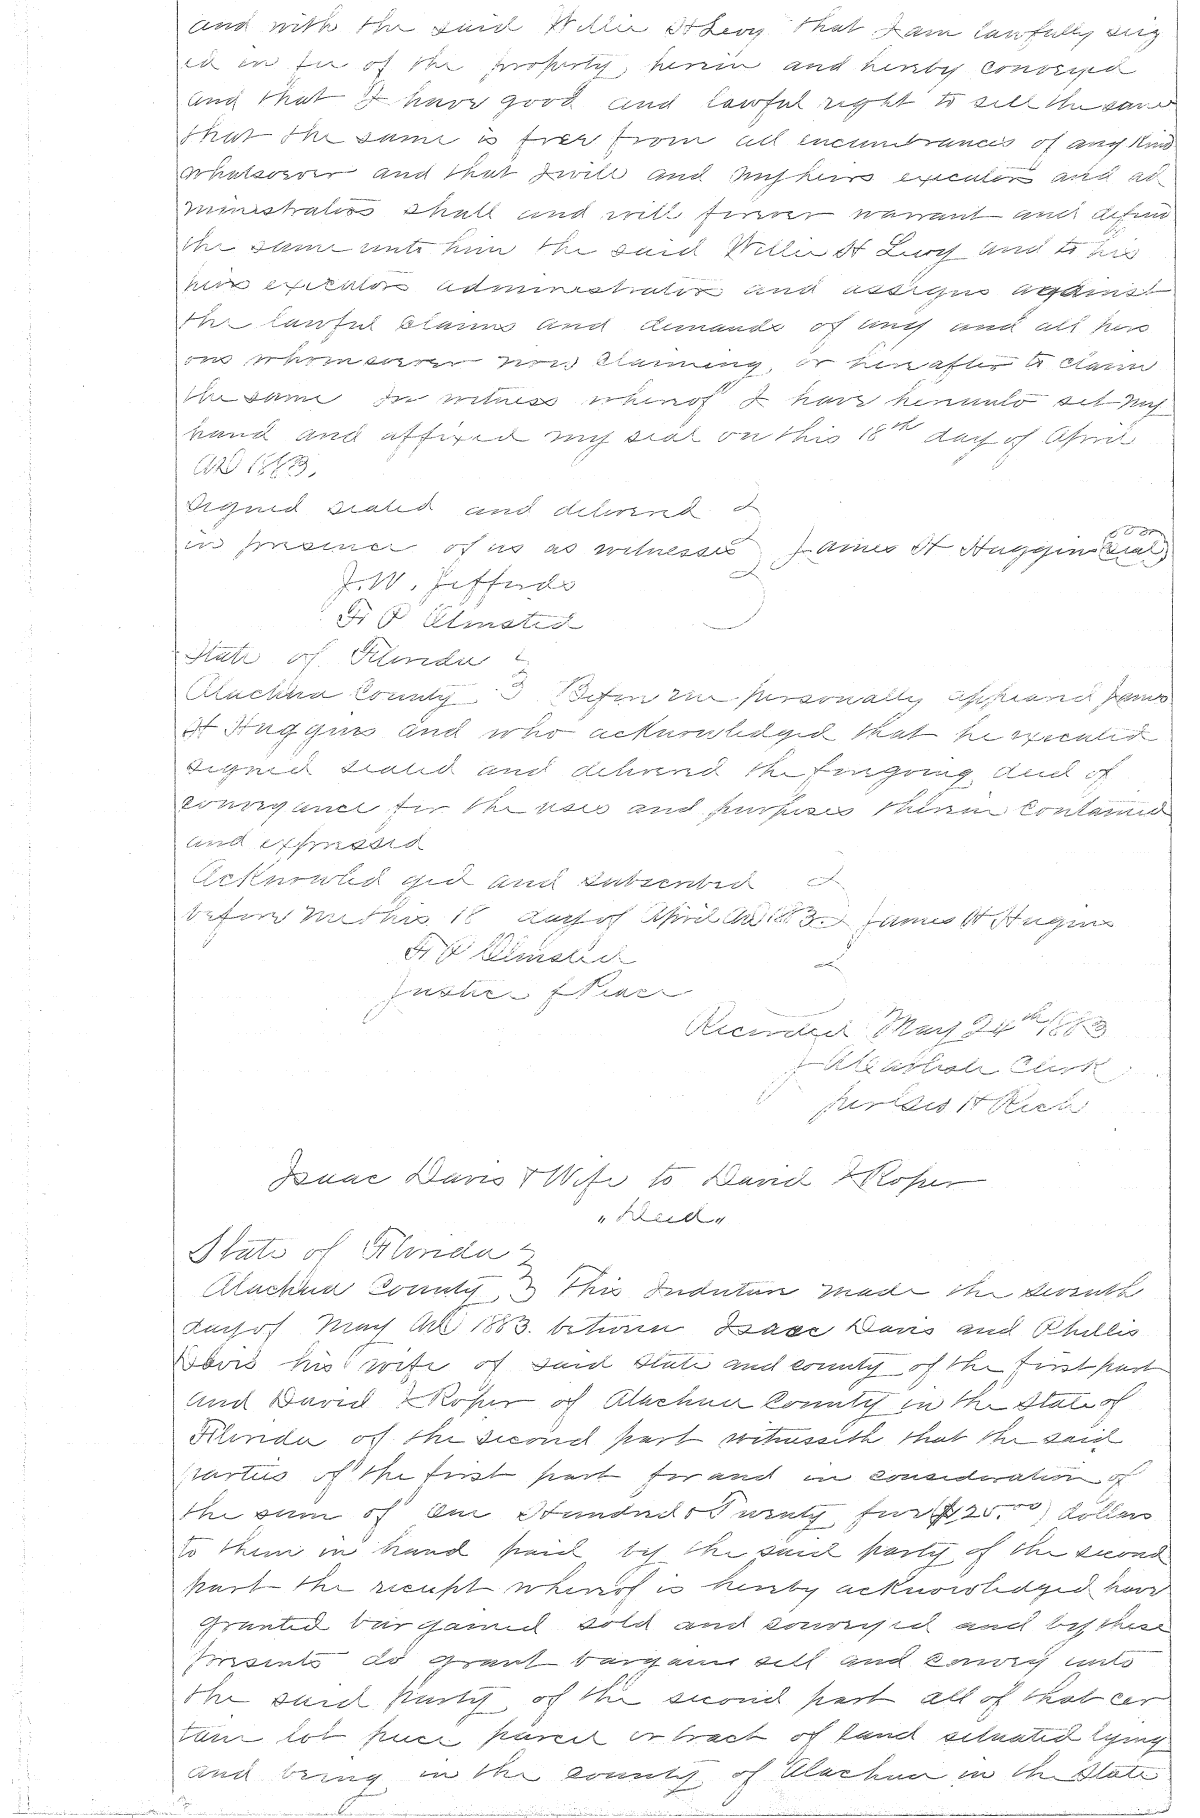 and with the said Willie H Levy that I am lawfully seiz
ed in fee of the property herein and hereby conveyed
and that I have good and lawful right to sell the same
that the same is free from all encumbrances of any kind
whatsoever and that I will and my heirs executors and ad
ministrators shall and will forever warrant and defend
the same unto him the said Willie H Levy and to his
heirs executors administrators and assigns against
the lawful claims and demands of any and all pers
ons whomsoever now claiming, or hereafter to claim
the same In witness whereof I have hereunto set my
hand and affixed my seal on this 18th day of April
AD 1883.
Signed sealed and delivered
in presence of us as witnesses James H Huggins (seal)
J. W. Jeffords
F. P Olmsted
State of Florida
Alachua County } Before me personally appeared James
H Huggins and who acknowledged that he executed
signed sealed and delivered the foregoing deed of
conveyance for the uses and purposes therein contained
and expressed
Acknowled ged and subscribed
before me this 18 day of April AD 1883. James H Hugins
F P Olmsted
Justice of Peace
Recorded May 24th 1883
J A Clerk
per H Rich
Isaac Davis & Wife to David Roper
"Deed"
State of Florida
Alachua County } This Indenture made the seventh
day of May AD 1883. between Isaac Davis and Phillis
Davis his wife of said State and county of the first part
and David Roper of Alachua County in the State of
Florida of the second part witnesseth that the said
parties of the first part for and in consideration of
the sum of One Hundred & Twenty five ($125.00) dollars
to them in hand paid by the said party of the second
part the receipt whereof is hereby acknowledged have
granted bargained sold and conveyed and by these
presents do grant bargain sell and convey unto
the said party of the second part all of that cer
tain lot piece parcel or tract of land situated lying
and being in the county of Alachua in the State